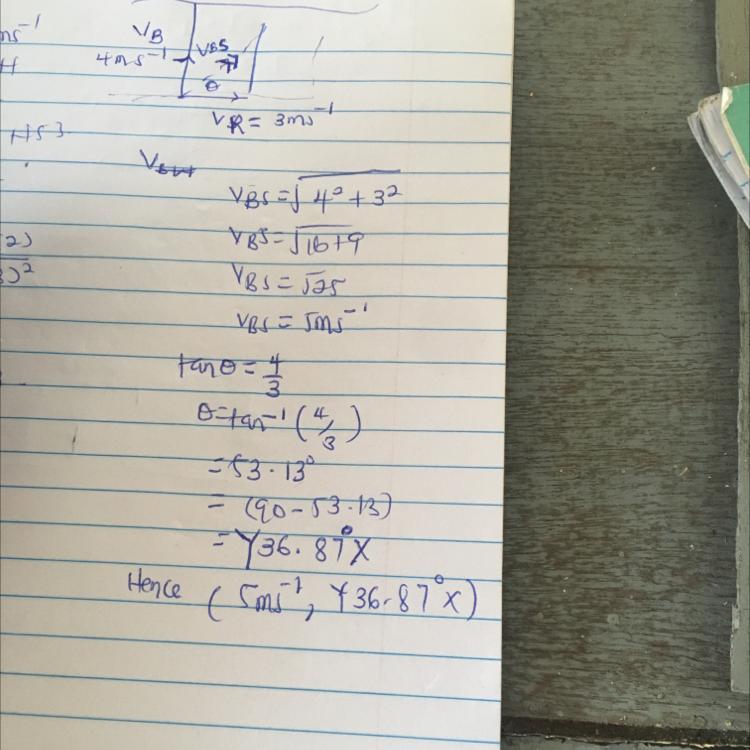 ms⁻¹
VB
VBS
4ms⁻¹
θ
VR = 3ms⁻¹
VBS = √4² + 3²
VBS = √16+9
VBS = √25
VBS = 5ms⁻¹
tanθ = 4/3
θ = tan⁻¹ (4/3)
= 53.13°
= (90 - 53.13)
= Y36.87°X
Hence (5ms⁻¹, Y36.87°X)